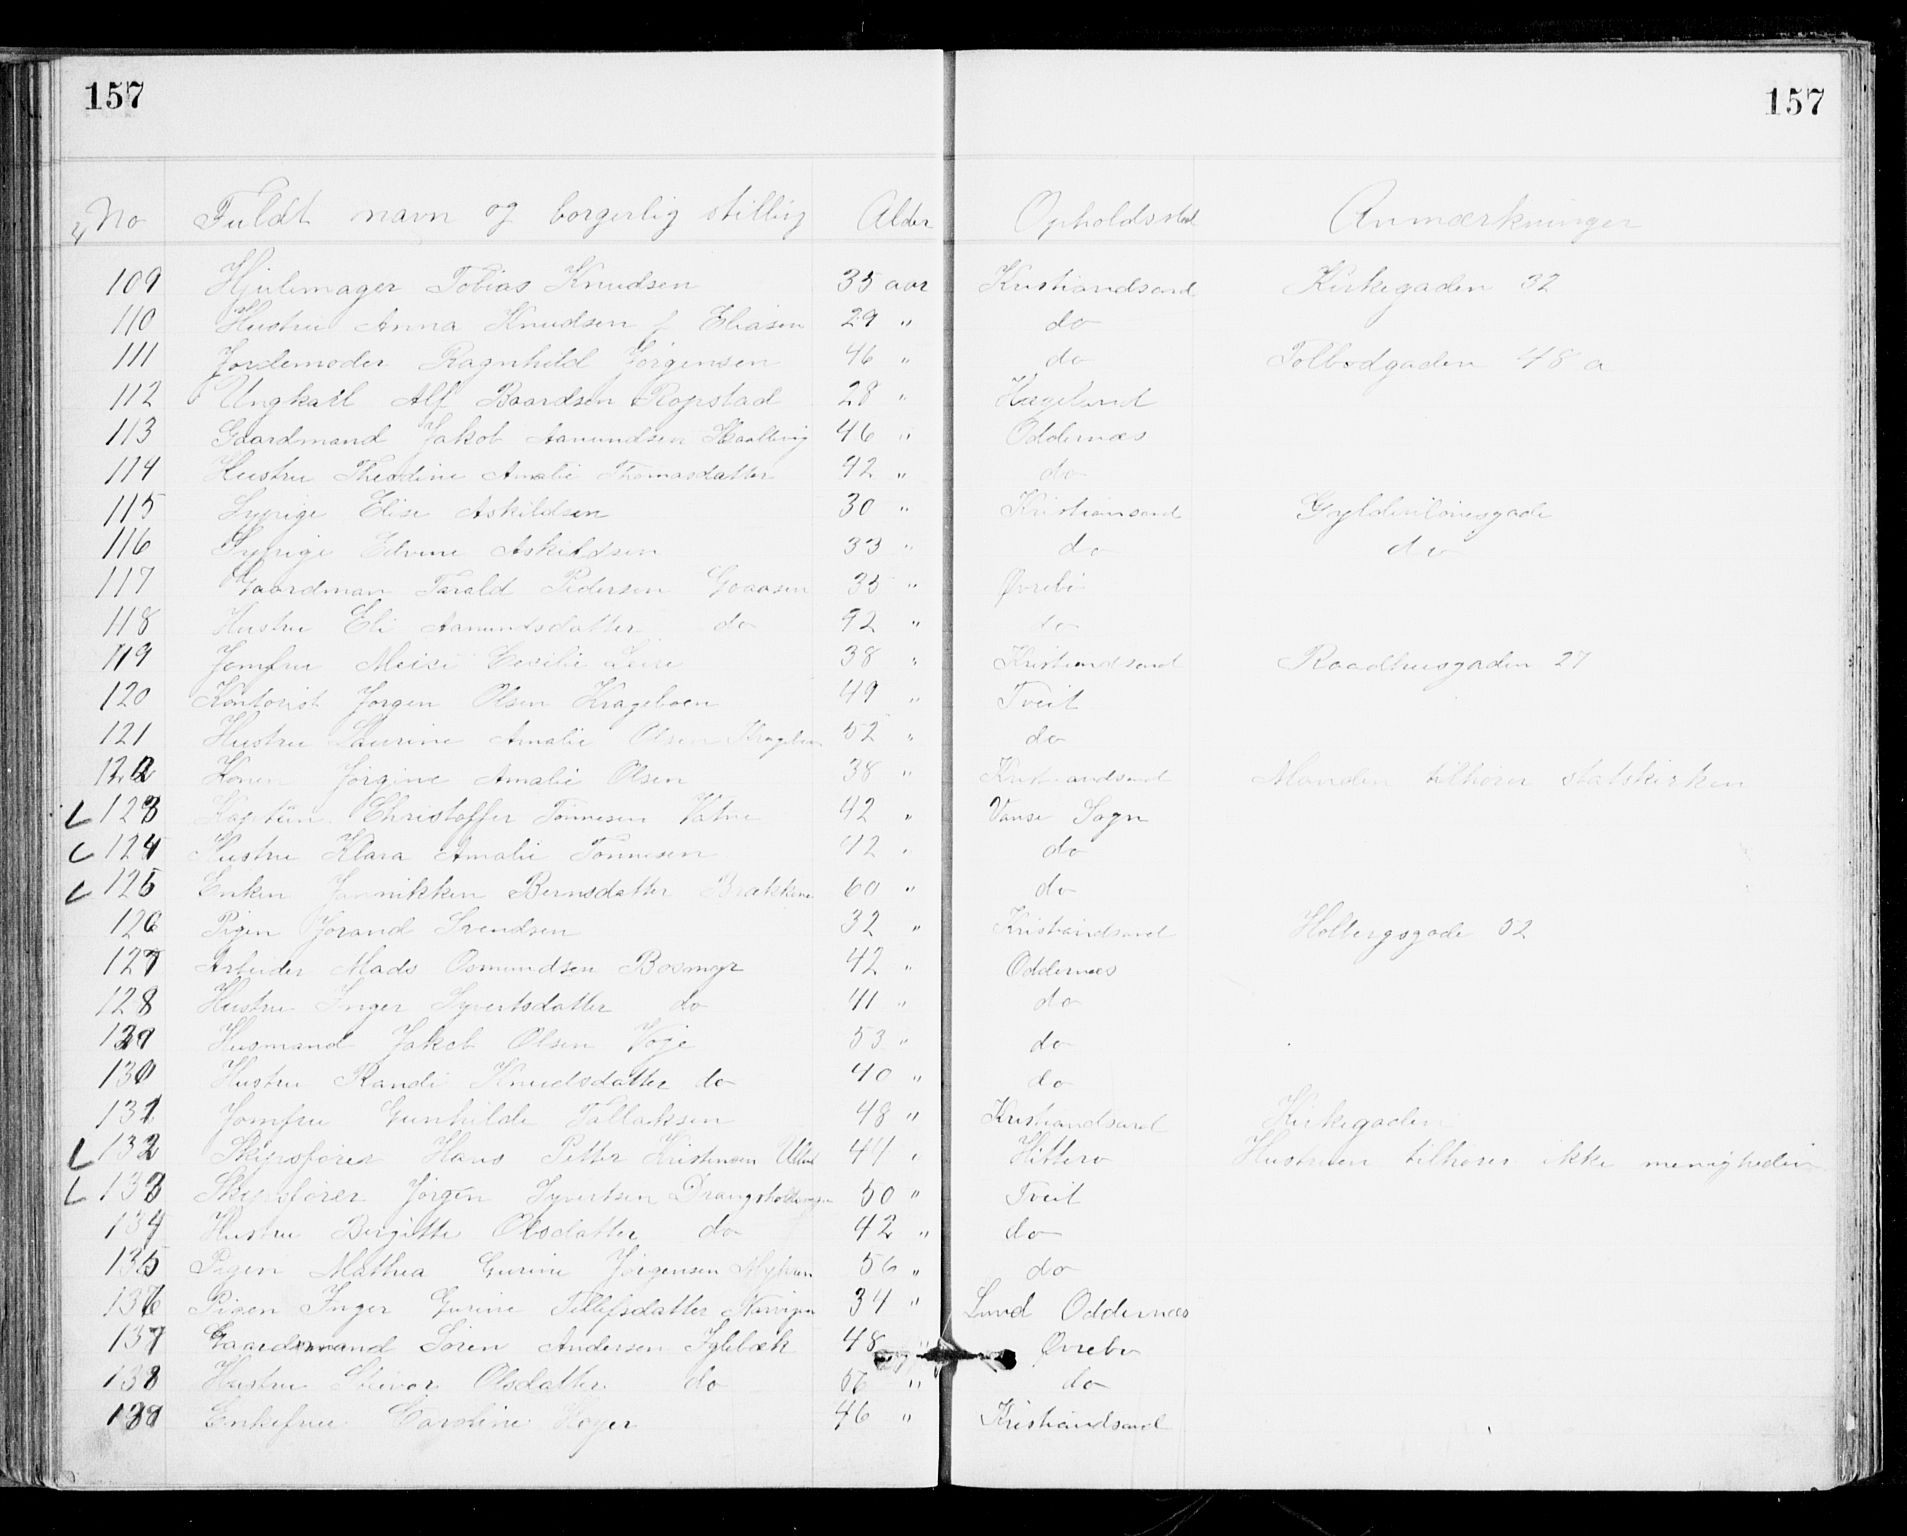 157 157
No Fuldt navn og borgerlig stilling Alder Opholdssted Anmærkninger
109 Hjulemager Tobias Knudsen 35 aar Kristiandsand Kirkegaden 32
110 Hustru Anna Knudsen f Eliasen 29 " do
111 Jordemoder Ragnhild Jørgensen 46 " do Tolbodgaden 48 a
112 Ungkarl Alf Baardsen Ropstad 28 " Hægeland
113 Gaardmand Jakob Aanundsen 46 " Oddernæs
114 Hustru Theodine Amalie Thomasdatter 42 " do
115 Syerige Elise Askildsen 30 " Kristiansand Gyldenløvesgade
116 Syerige Edvine Askildsen 33 " do do
117 Gaardman Tarald Pedersen 35 " Øvrebø
118 Hustru Eli Aanundsdatter do 42 " do
119 Jomfru Cecilie 38 " Kristiandsand Raadhusgaden 27
120 Kontorist Jørgen Olsen Krageboen 49 " Tveit
121 Hustru Laurine Amalie Olsen 52 " do
122 Konen Jørgine Amalie Olsen 38 " Kristiandsand Manden tilhører statskirken
L 123 Kaptein Christoffer Tønnesen Vatne 42 " Vanse Sogn
L 124 Hustru Klara Amalie Tønnesen 42 " do
L 125 Enken Jannikken Berntsdatter 60 " do
126 Pigen Jorand Svendsen 32 " Kristiandsand Holbergsgade 52
127 Arbeider Mads Osmundsen Bosmyr 42 " Oddernæs
128 Hustru Inger Syvertsdatter do 41 " do
129 Husmand Jakob Olsen Voje 53 " do
130 Hustru Randi Knudsdatter do 40 " do
131 Jomfru Gunhilde Tallaksen 48 " Kristiandsand Kirkegaden
L 132 Skipsfører Hans Petter Kristensen 44 " Hitterø Hustruen tilhører ikke menigheden
L 133 Skipsfører Jørgen Syvertsen 50 " Tveit
134 Hustru Birgitte Olsdatter do 42 " do
135 Pigen Mathea Gurine Jørgensen 56 " do
136 Pigen Inger Gurine Tellefsdatter 34 " Lund Oddernæs
137 Gaardmand Søren Andersen 48 " Øvrebø
138 Hustru Olsdatter do 56 " do
139 Enkefrue Caroline Høyer 46 " Kristiandsand